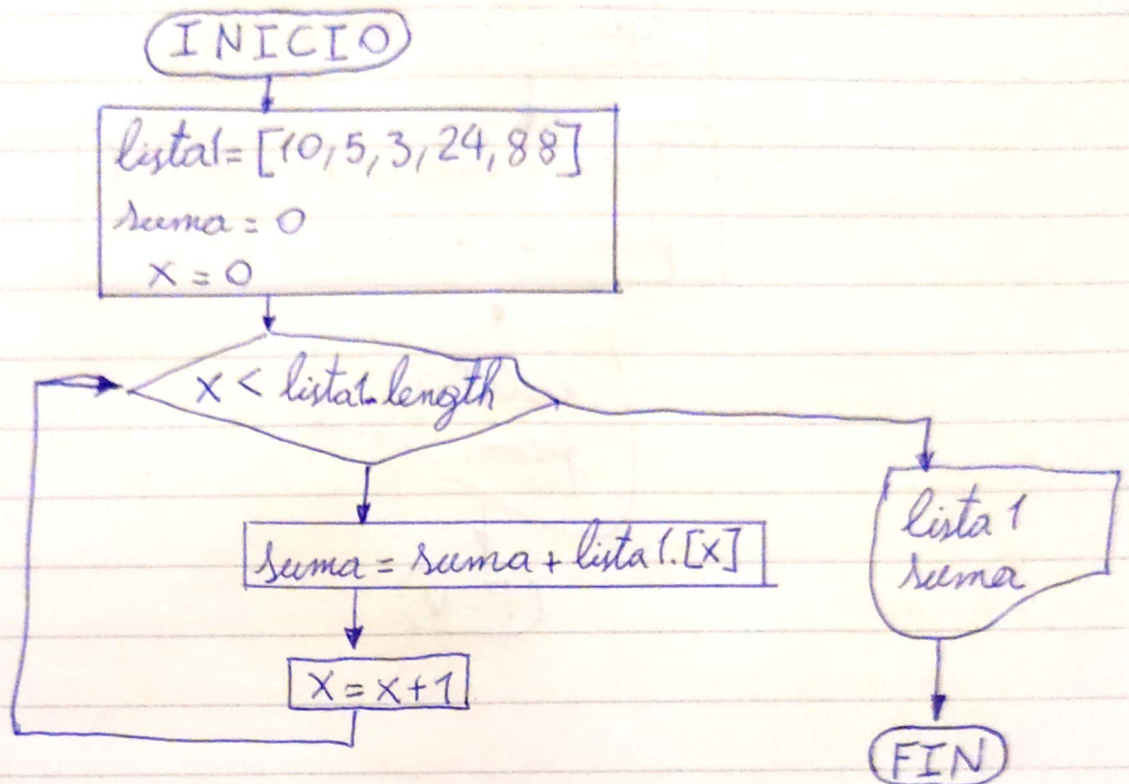 INICIO
lista1=[10,5,3,24,88]
suma = 0
x = 0
x < lista1.length
suma = suma + lista1.[x]
x = x+1
lista1
suma
FIN